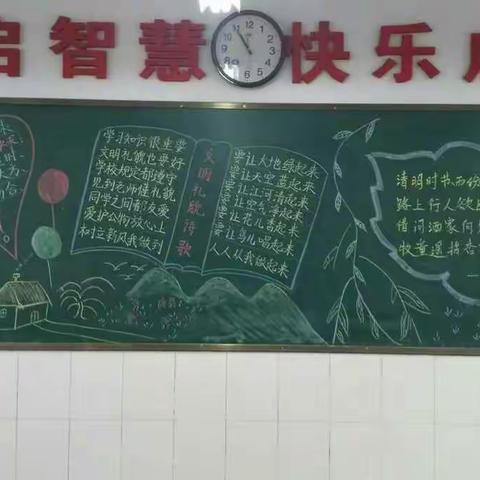 启智慧 快乐
学习知识很重要
文明礼貌也要好
学校规定都遵守
见到老师懂礼貌
同学之间都友爱
爱护公物放心上
树立新风我做到
文明礼貌诗歌
要让大地绿起来
要让天空蓝起来
要让江河清起来
要让空气净起来
要让花儿香起来
要让鸟儿唱起来
人人从我做起来
清明时节雨纷
路上行人欲断
借问酒家何
牧童遥指杏